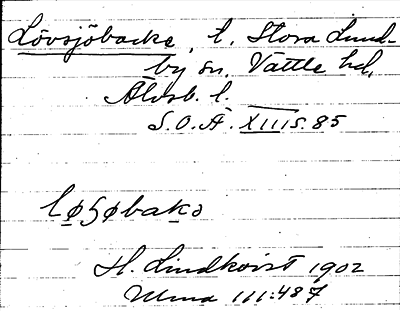 Lövsjöbacke, l. Stora Lund-
by sn. Vättle hd,
Älvsb. l.
S.O.Ä. XIII S. 85
H. Lindkvist 1902
Ulma 111:487